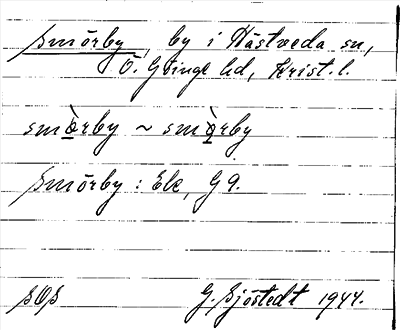 Smörby, by i Hästveda sn,
Ö. Göinge hd, Krist. l.
smö̀rby ~ smò̤rby
Smörby : Ek, G 9.
SOS
G. Sjöstedt 1944.